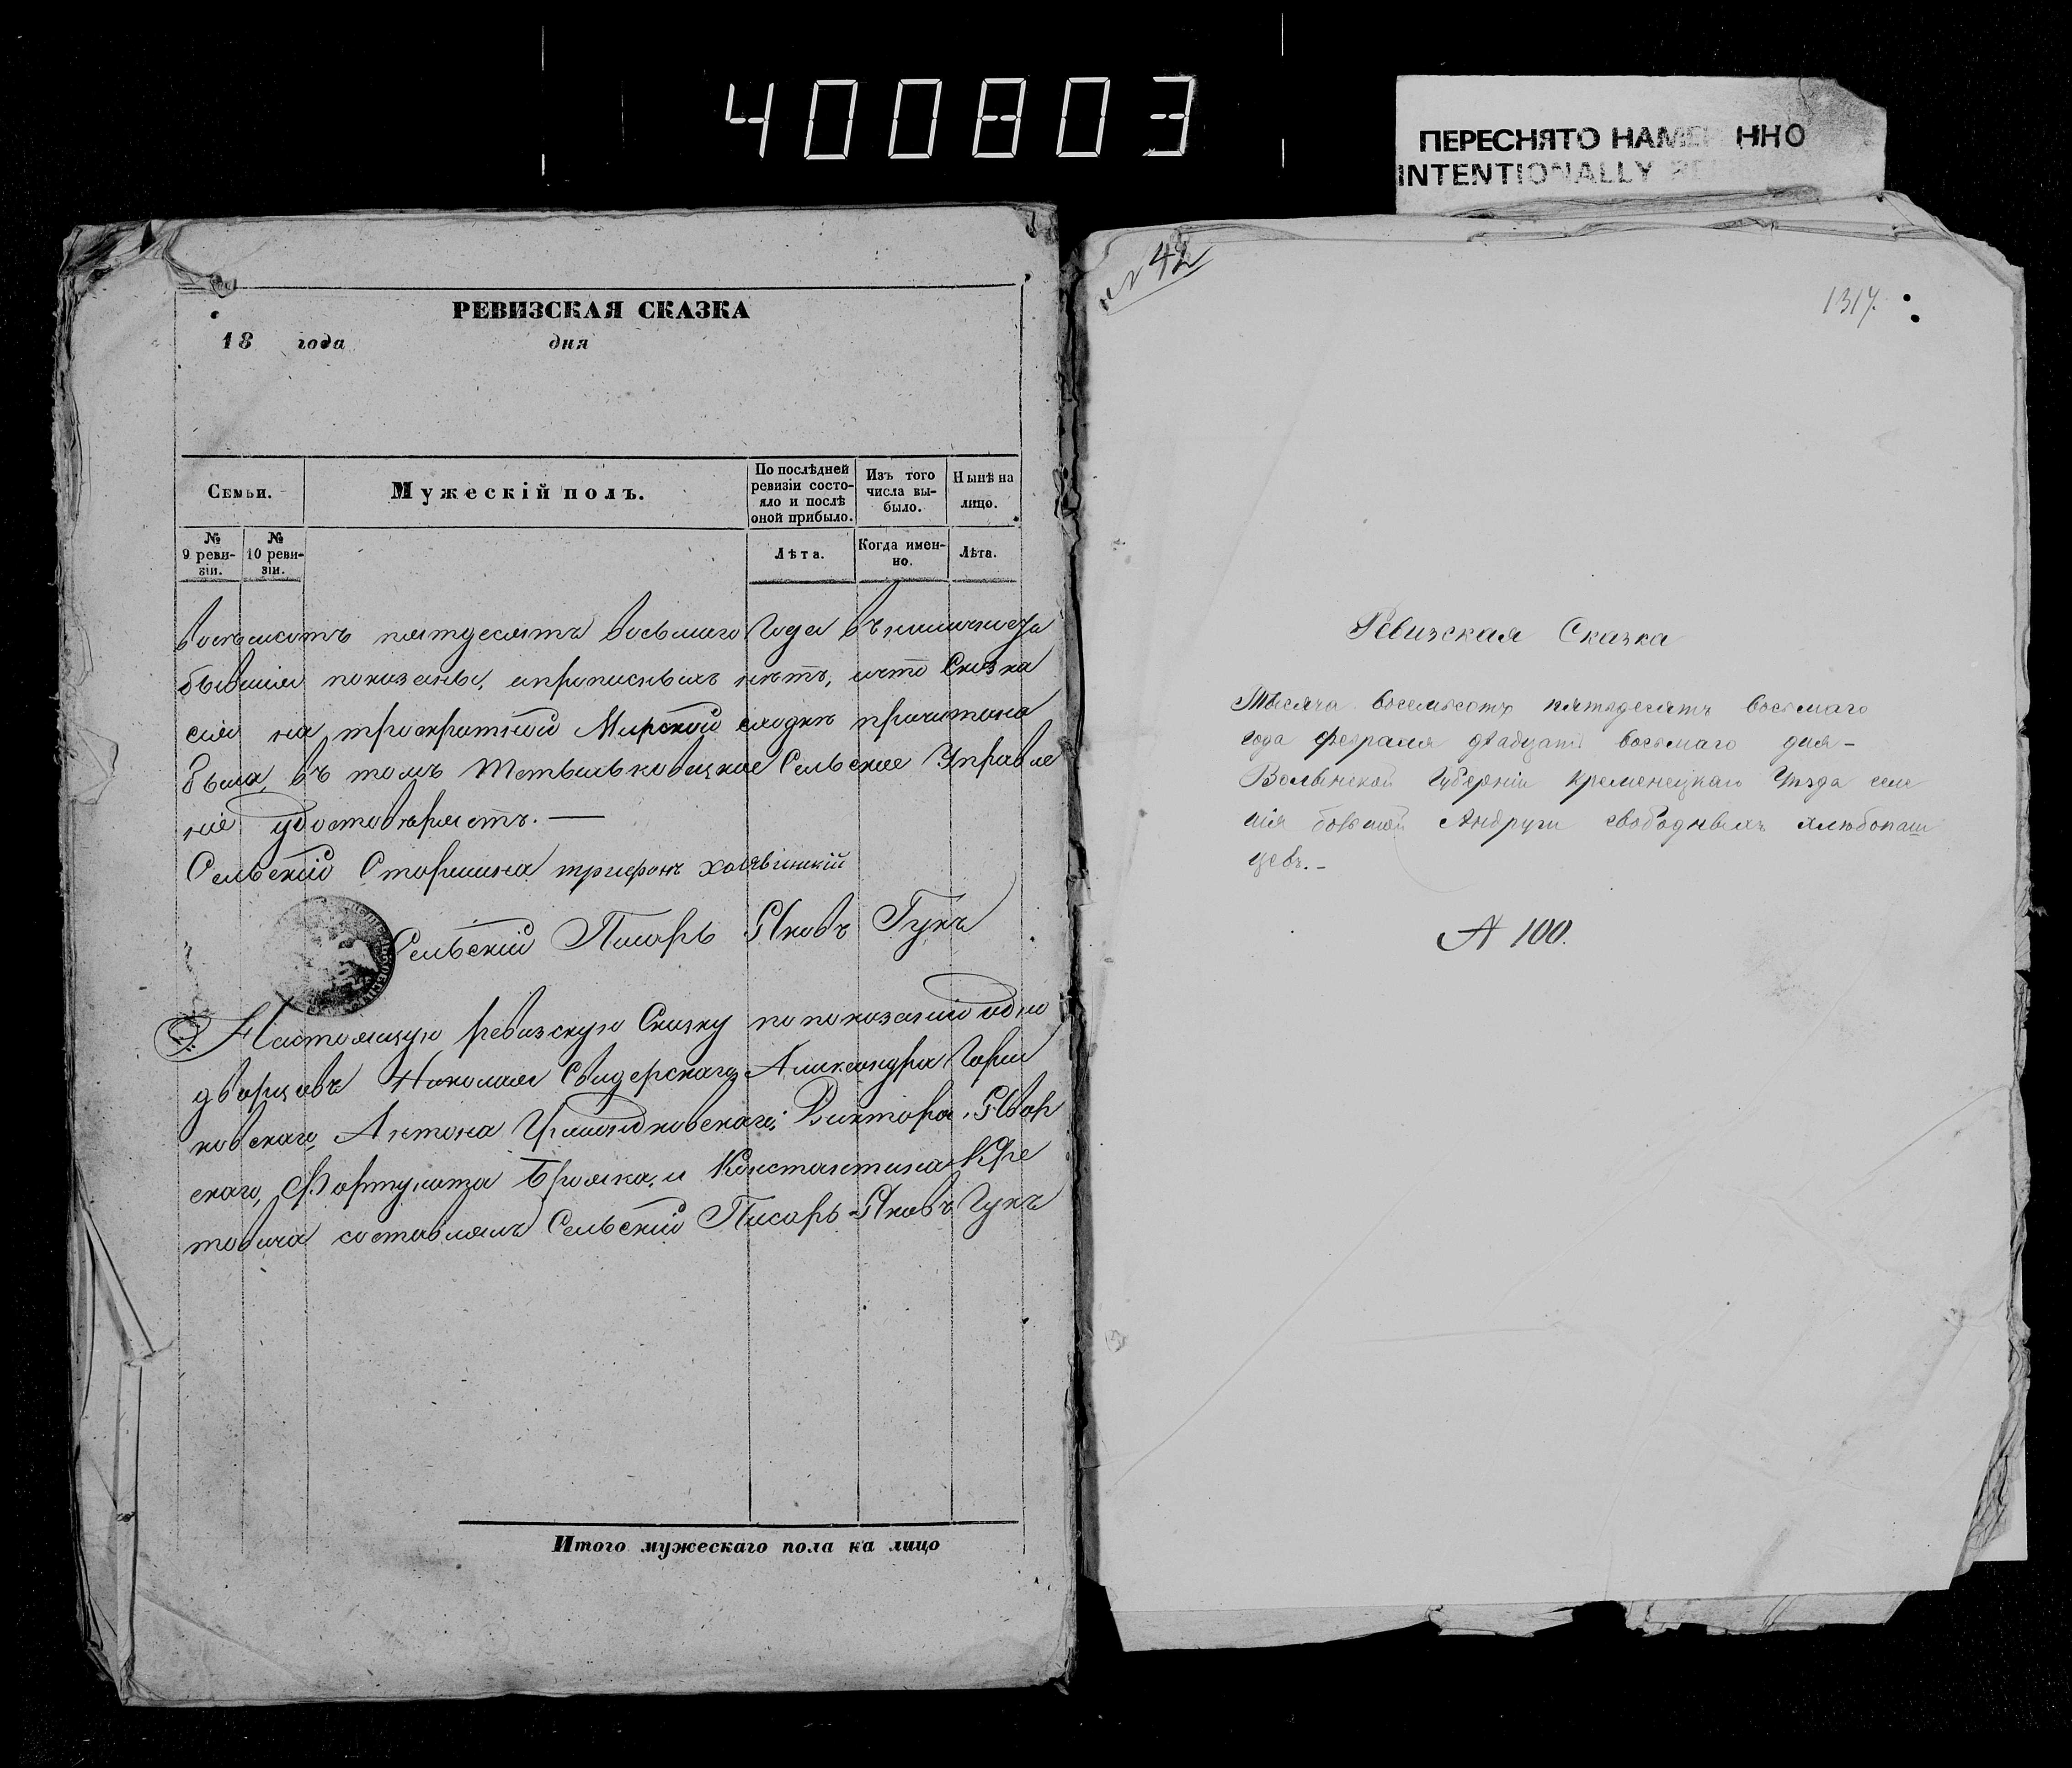 400803
ПЕРЕСНЯТО НАМЕ ННО
INTENTIONALLY
РЕВИЗСКАЯ СКАЗКА
18 года дня
Семьи.
Мужескій полъ.
По послѣдней ревизіи состо-
яло и послѣ
оной прибыло.
Изъ того
числа вы-
было.
Нынѣ на
лицо.
№
9 реви-
зіи.
№
10 реви-
зіи.
Лѣта.
Когда имен-
но.
Лѣта.
восемьсотъ пятдесятъ восьмаго года
бывшіи показаны, апрописныхъ нѣтъ, ичто Сказка
сія на троекратной Мирской сходкѣ прочитана
была, въ томъ Сельское Управле
ніе удостовѣряетъ. —
Сельскій Старшина трифонъ
Сельскій Писарь Яковъ Гукъ
Настоящую ревизскую Сказку попоказанію одно
дворцовъ Николая Свидерскаго, Александра Горш
ковскаго, Антона Виктора Явор
скаго, Фортуната и Константина Кре
товича составлялъ Сельскій Писарь Яковъ Гукъ
Итого мужескаго пола на лицо
№ 42
1317.
Ревизская Сказка
Тысяча восемьсотъ пятьдесятъ восьмаго
года февраля двадцать восьмаго дня -
Волынской Губерніи Кременецкаго Уѣзда селе
нія большой Андруги свободныхъ хлѣбопаш
цевъ. -
А 100.